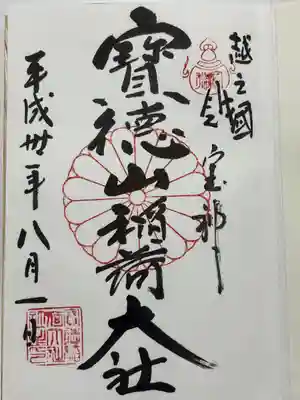 越之國
寶徳山稲荷大社
平成卅年八月一日